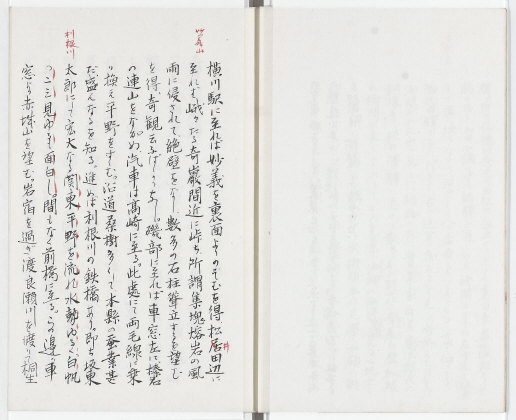 妙義山
横川駅に至れば妙義を裏面よりのぞむを得松居田辺に
井
至れば峨々たる奇巌間近に峙ち所謂集塊熔岩の風
雨に侵されて絶壁をなし数多の石柱聳立するを望む
を得奇観云ふばかりなし。磯部に至れば車窓左に榛名
の連山をながめ汽車は高崎に至る。此處にて両毛線に乗
り換え平野をすすむ。沿道桑樹多くして本縣の蚕業甚
だ盛んなるを知る。進めば利根川の鉄橋あり即ち坂東
利根川
太郎にして宏大なる関東平野を流れ水勢ゆるく白帆
の二三見ゆるも面白し。間もなく前橋に至る。この辺り車
窓より赤城山を望む。岩宿を過ぎ渡良瀬川を渡り桐生